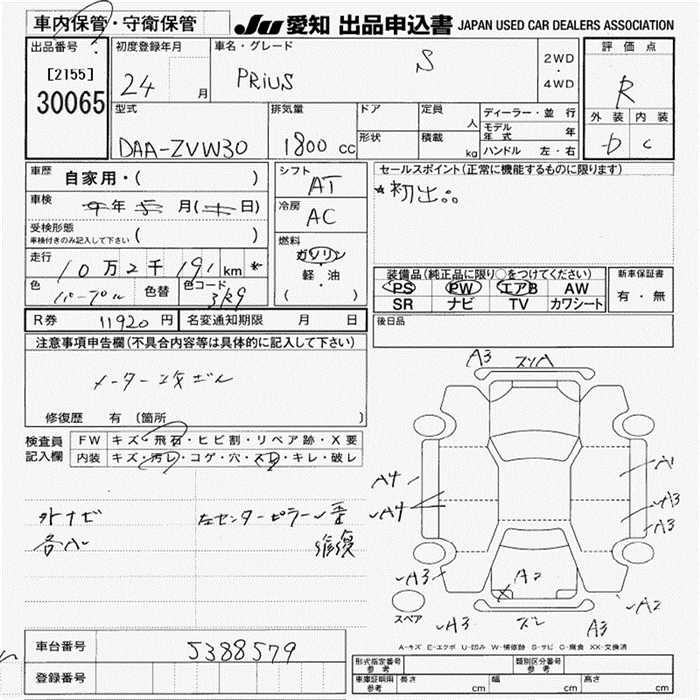 車内保管・守衛保管
JU 愛知 出品申込書 JAPAN USED CAR DEALERS ASSOCIATION
出品番号
[2155]
30065
初度登録年月
24 月
車名・グレード
PRIUS S
2WD
・
4WD
評価点
R
外装 内装
D C
型式
DAA-ZVW30
排気量
1800 cc
ドア
形状
定員
人
積載
kg
ディーラー・並 行
モデル年式 年
ハンドル 左・右
車歴
自家用・( )
車検
年 月( 日)
受検形態
車検付きのみ記入して下さい ( )
走行
10万2千191 km *
色
パープル
色替
色コード
3R9
シフト
AT
冷房
AC
燃料
ガソリン
軽・油
( )
セールスポイント(正常に機能するものに限ります)
*初出。。
装備品(純正品に限り○をつけてください)
PS PW エアB AW
SR ナビ TV カワシート
新車保証書
有・無
後日品
R券 11920 円
名変通知期限 月 日
注意事項申告欄(不具合内容等は具体的に記入して下さい)
メーター改ざん
修復歴 有 (箇所 )
検査員記入欄
FW キズ・飛石・ヒビ割・リペア跡・X要
内装 キズ・汚レ・コゲ・穴・スレ・キレ・破レ
外ナビ
各ハ
左センターピラー
修復
A3 スリA
A4
A4
A1
A3
A3
A3
A2
A2
A3 スレ A3
スペア
A-キズ E-エクボ U-凹み W-補修跡 S-サビ C-腐食 XX-交換済
車台番号 5388579
登録番号
形式指定番号
参考
類別区分番号
参考
車庫証明用
参考
長さ cm
幅 cm
高さ cm